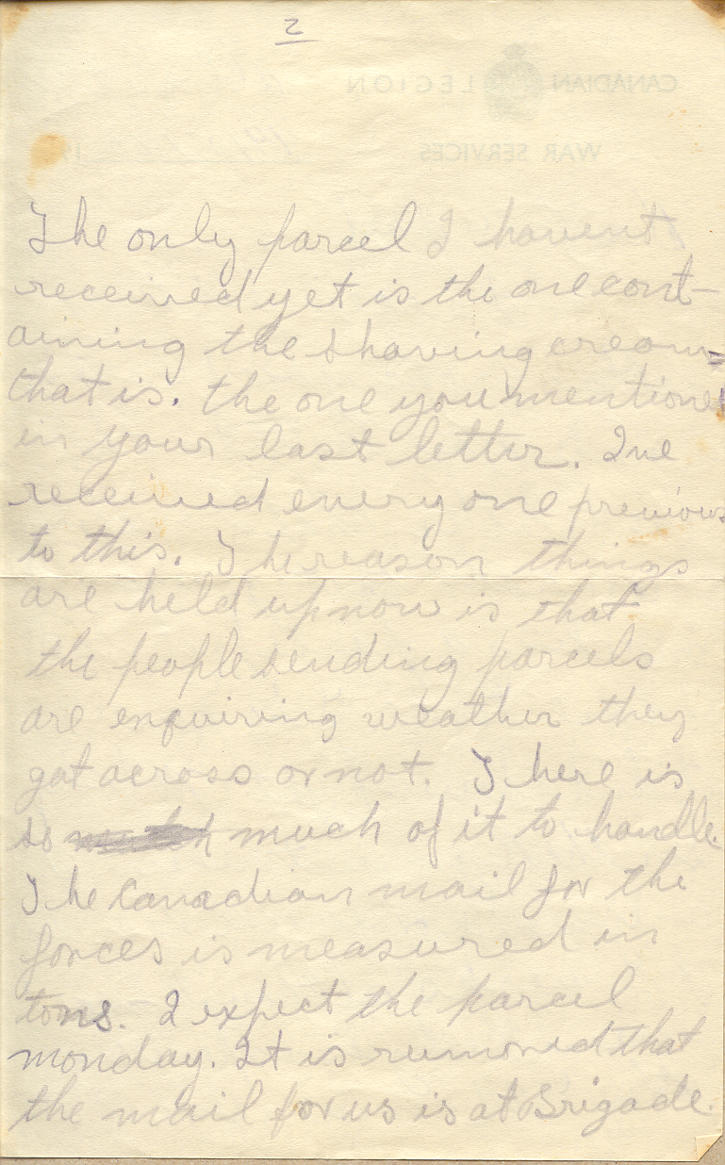 2
CANADIAN LEGION
WAR SERVICES
The only parcel I havent
received yet is the one cont-
aining the shaving cream=
that is. the one you mentioned
in your last letter. Ive
received every one previous
to this. The reason things
are held up now is that
the people sending parcels
are enquiring weather they
got across or not. There is
so much of it to handle.
The Canadian mail for the
forces is measured in
tons. I expect the parcel
monday. It is rumored that
the mail for us is at Brigade.